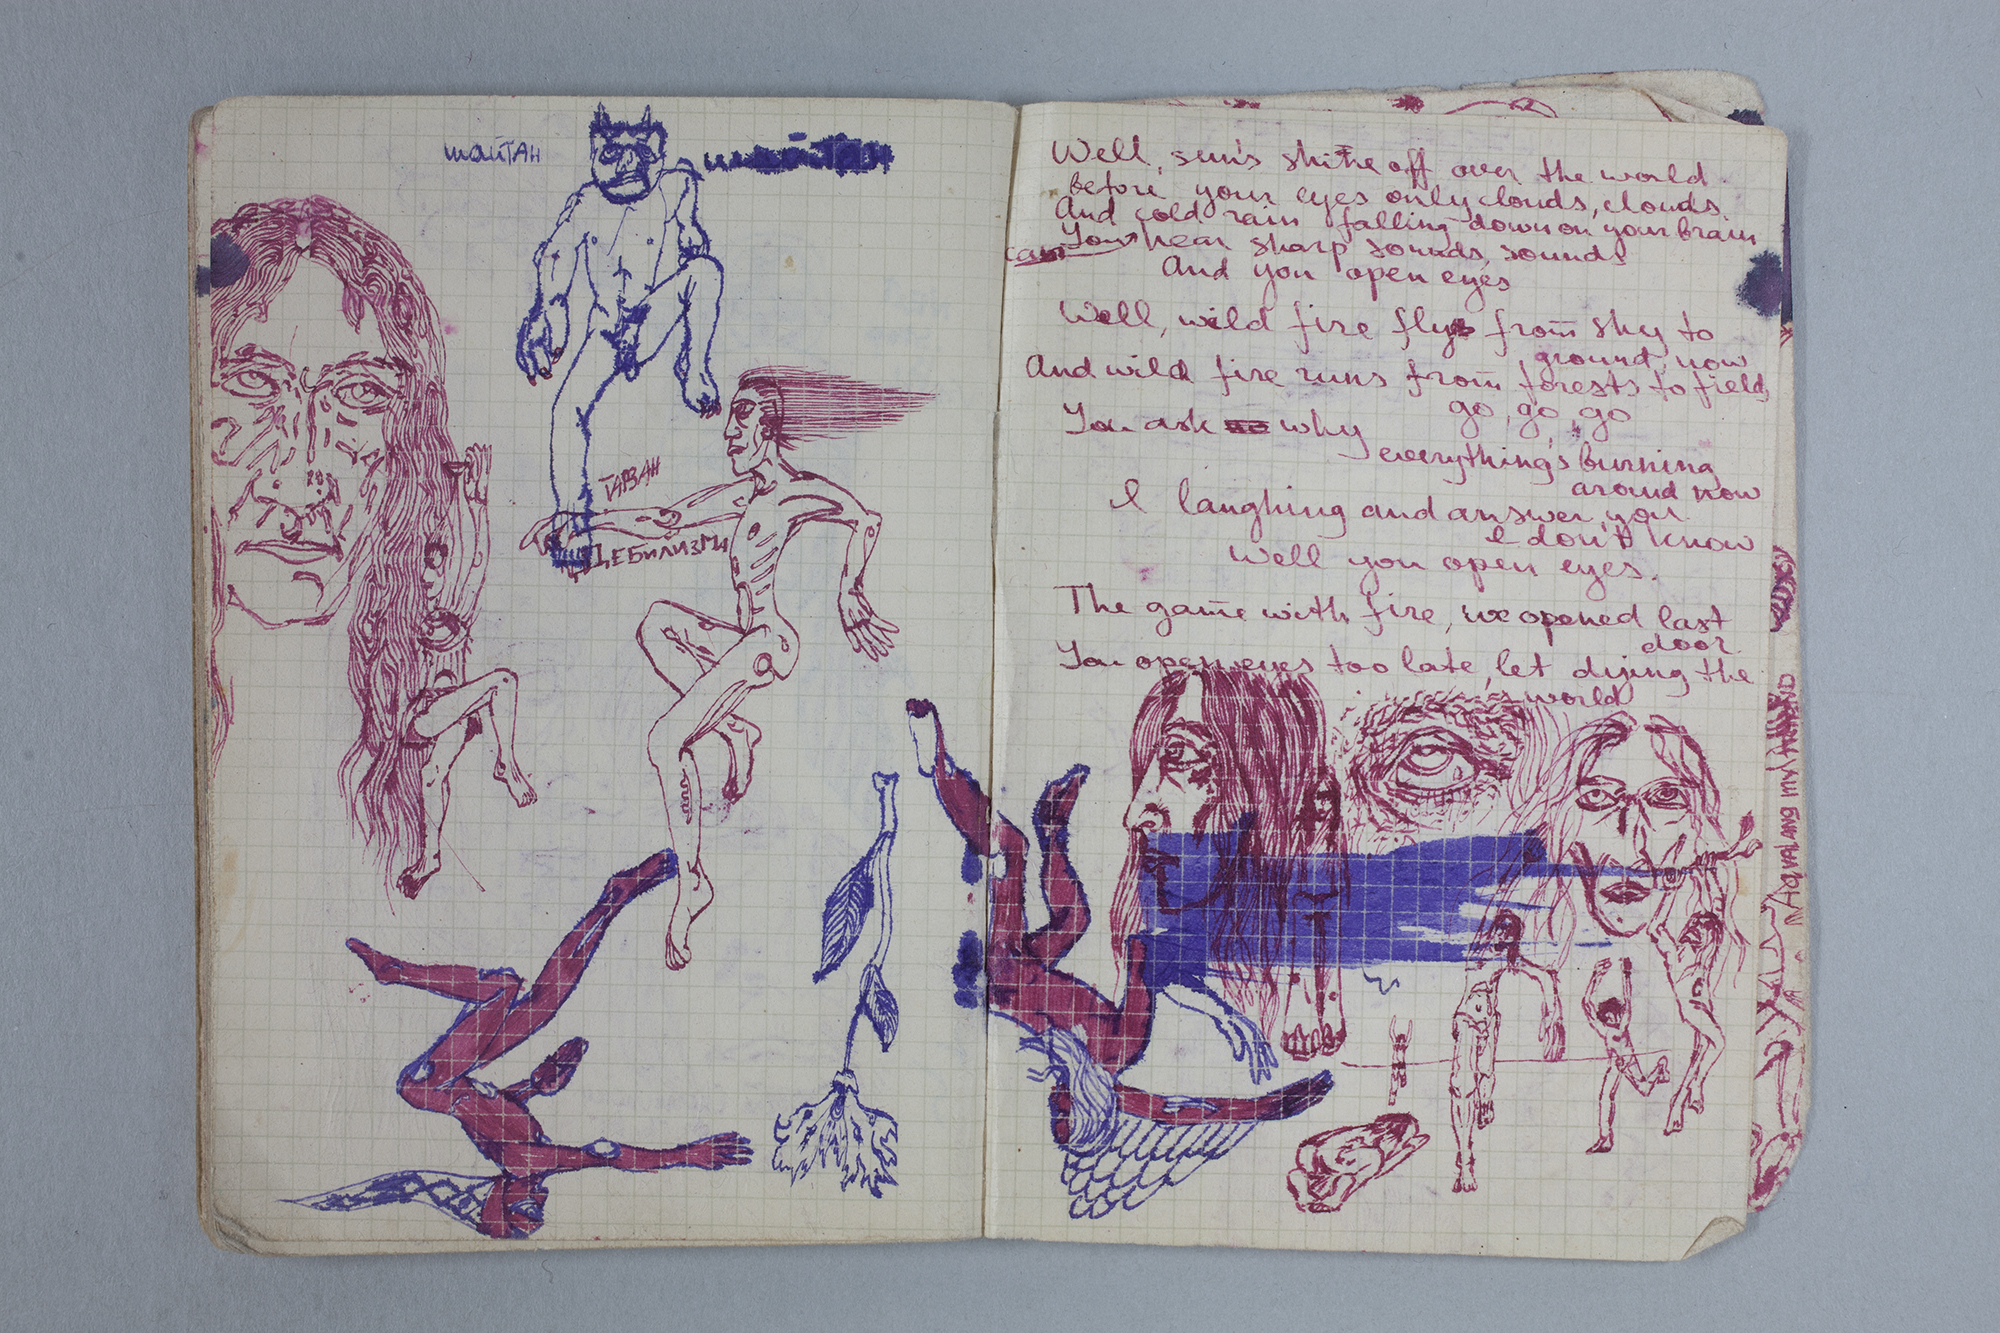 шайтАН
шайтан
ТАРЗАН
ДЕБИЛИЗМ
Well, sun's shine off over the world
before your eyes only clouds, clouds.
And cold rain falling down on your brain
can You hear sharp sounds, sounds
And you open eyes
Well, wild fire flys from sky to
ground, now
And wild fire runs from forests to fields
go, go, go
You ask why
everything's burning
around now
I laughing and answer, you
I don't know
Well you open eyes.
The game with fire, we opened last
door.
You open eyes too late, let dying the
world